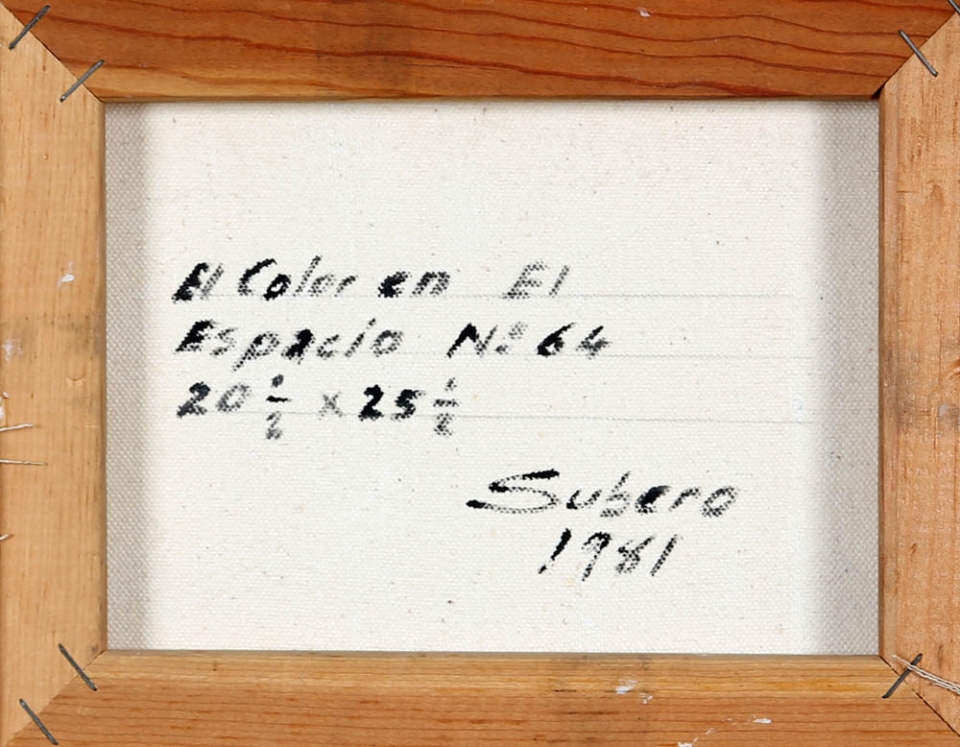 El Color en El
Espacio Nº 64
20 1/2 x 25 1/2
Subero
1981